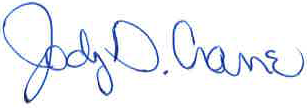 Jody D. Crane